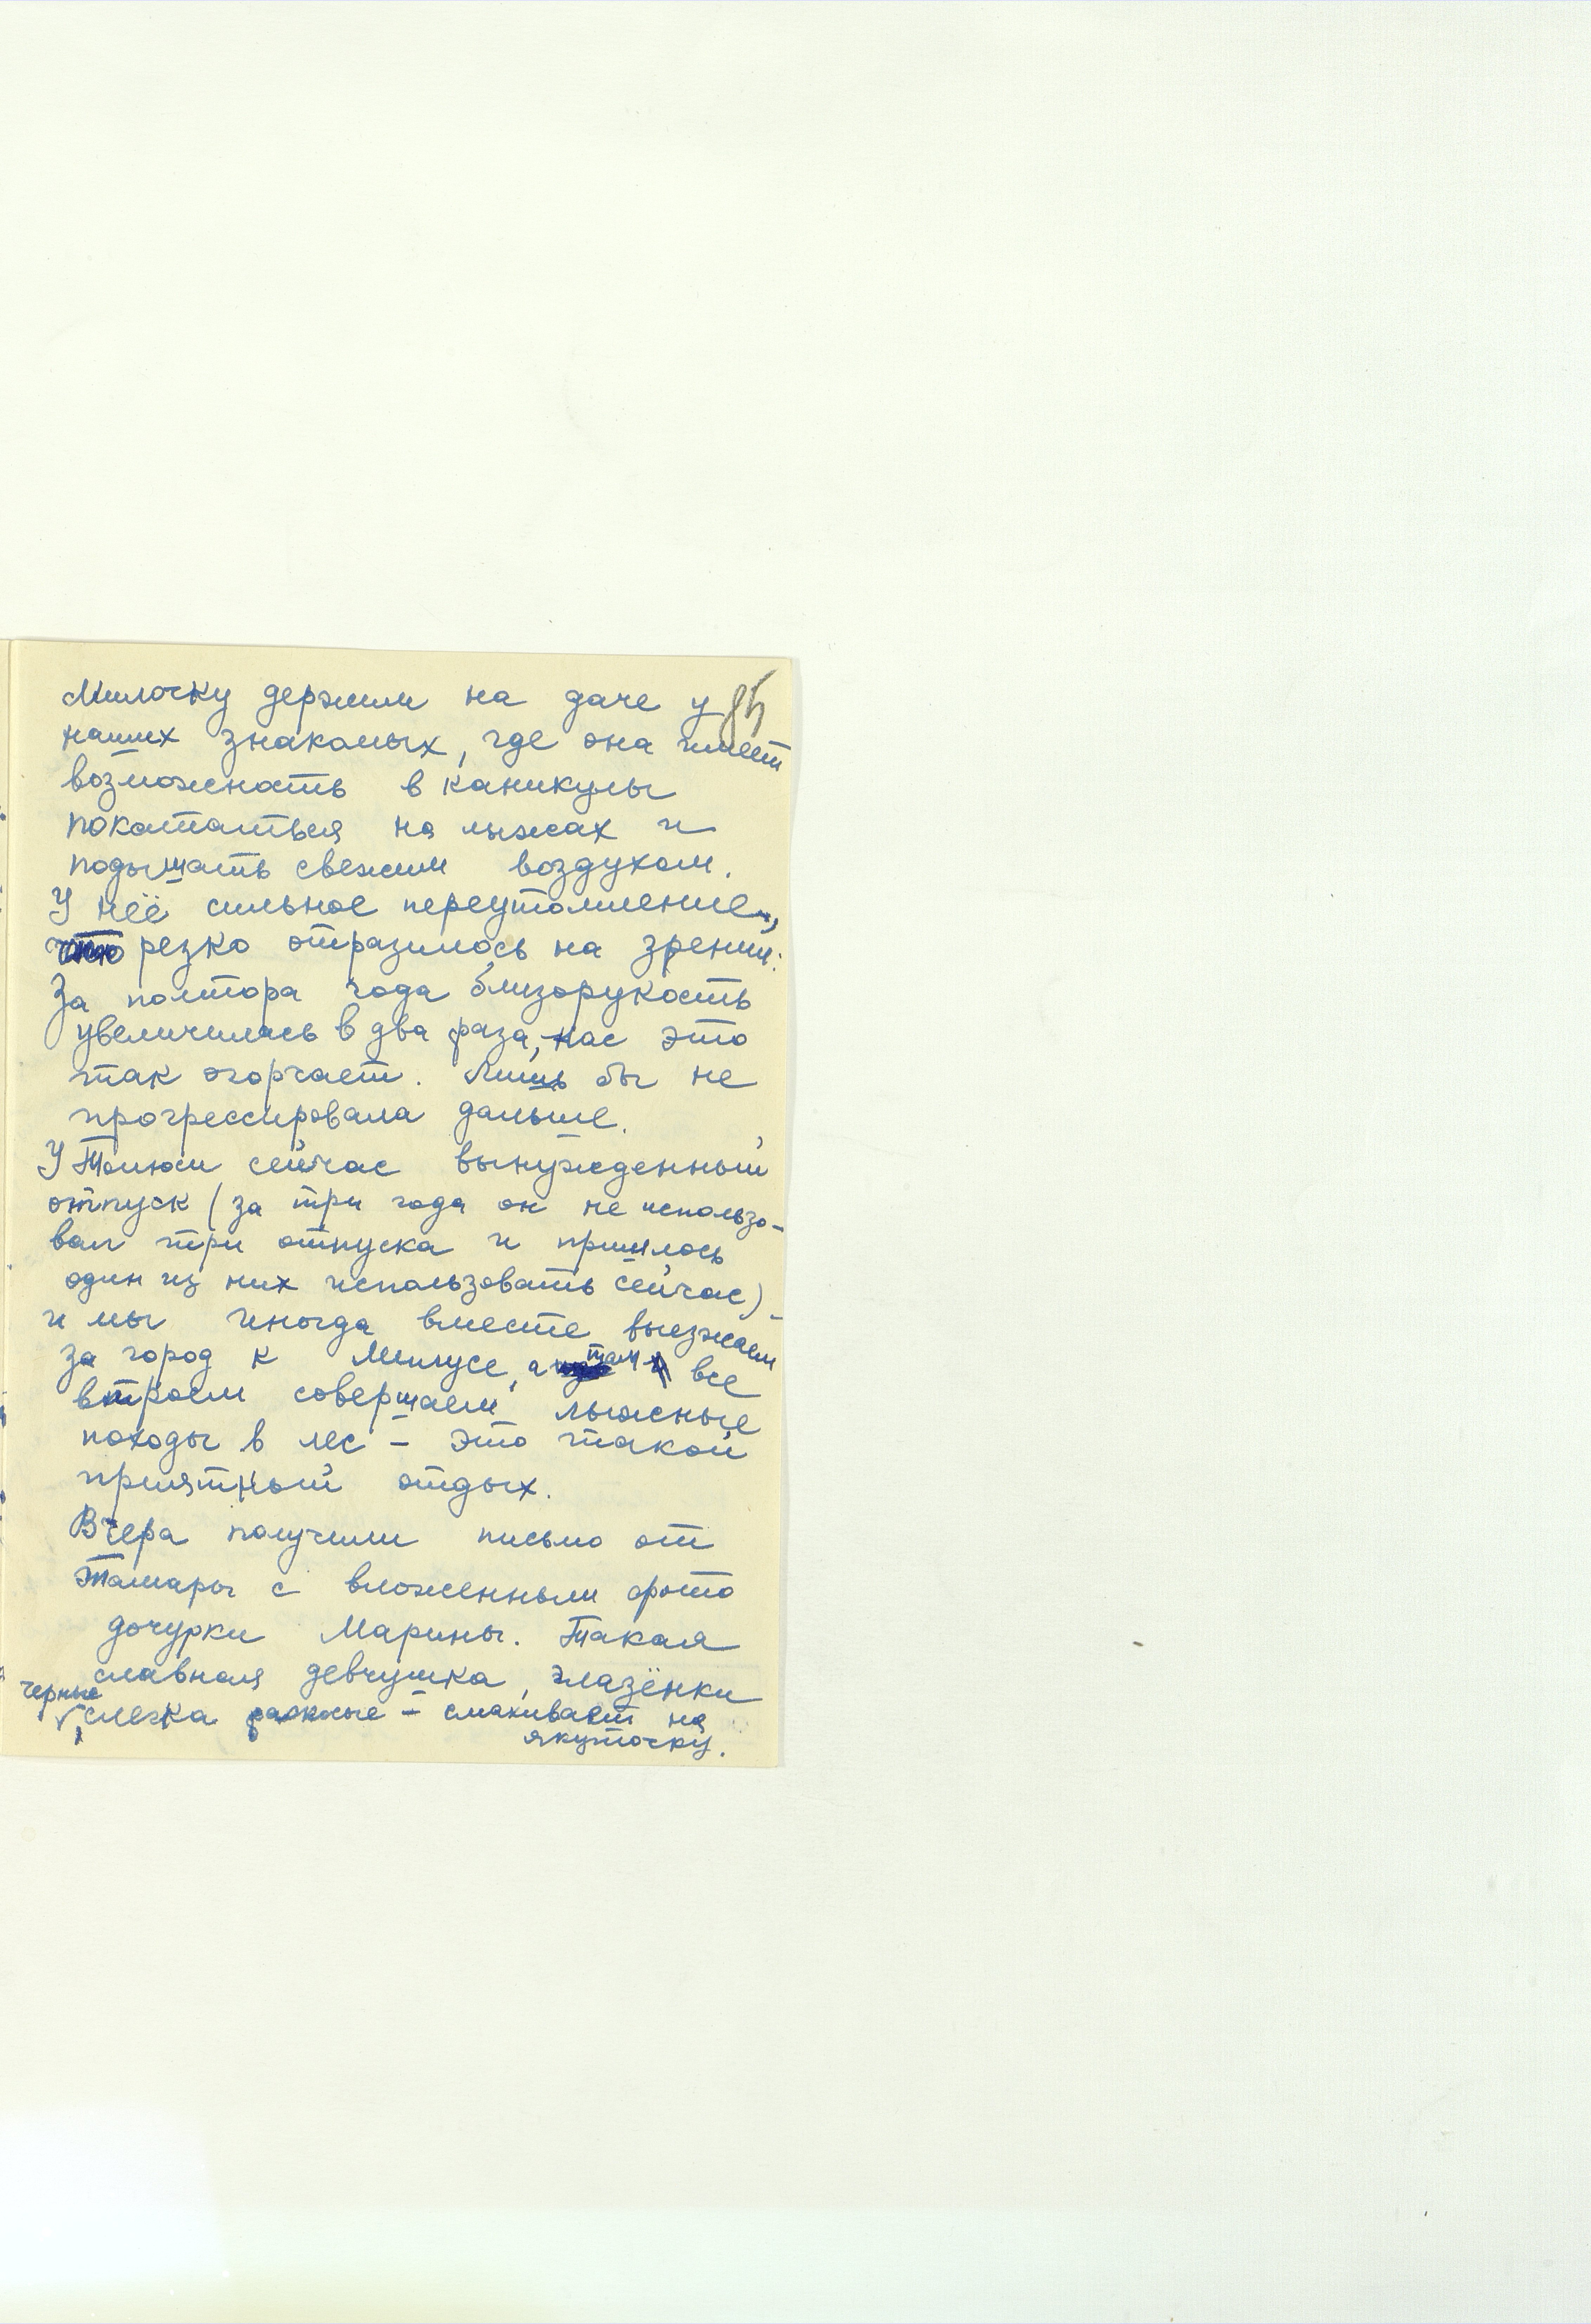 85
Милочку держим на даче у
наших знакомых, где она имеет
возможность в каникулы
покататься на лыжах и
подышать свежим воздухом.
У неё сильное переутомление,
что резко отразилось на зрении:
За полтора года близорукость
увеличилась в два раза, нас это
так огорчает. Лишь бы не
прогрессировала дальше.
У Толюси сейчас вынужденный
отпуск (за три года он не использо-
вал три отпуска и пришлось
один из них использовать сейчас)
и мы иногда вместе выезжаем
за город к Милусе, а там все
втроем совершаем лыжные
походы в лес – это такой
приятный отдых.
Вчера получили письмо от
Тамары с вложенными фото
дочурки Марины. Такая
славная девчушка, глазёнки
черные, слегка раскосые – смахивает на
якуточку.